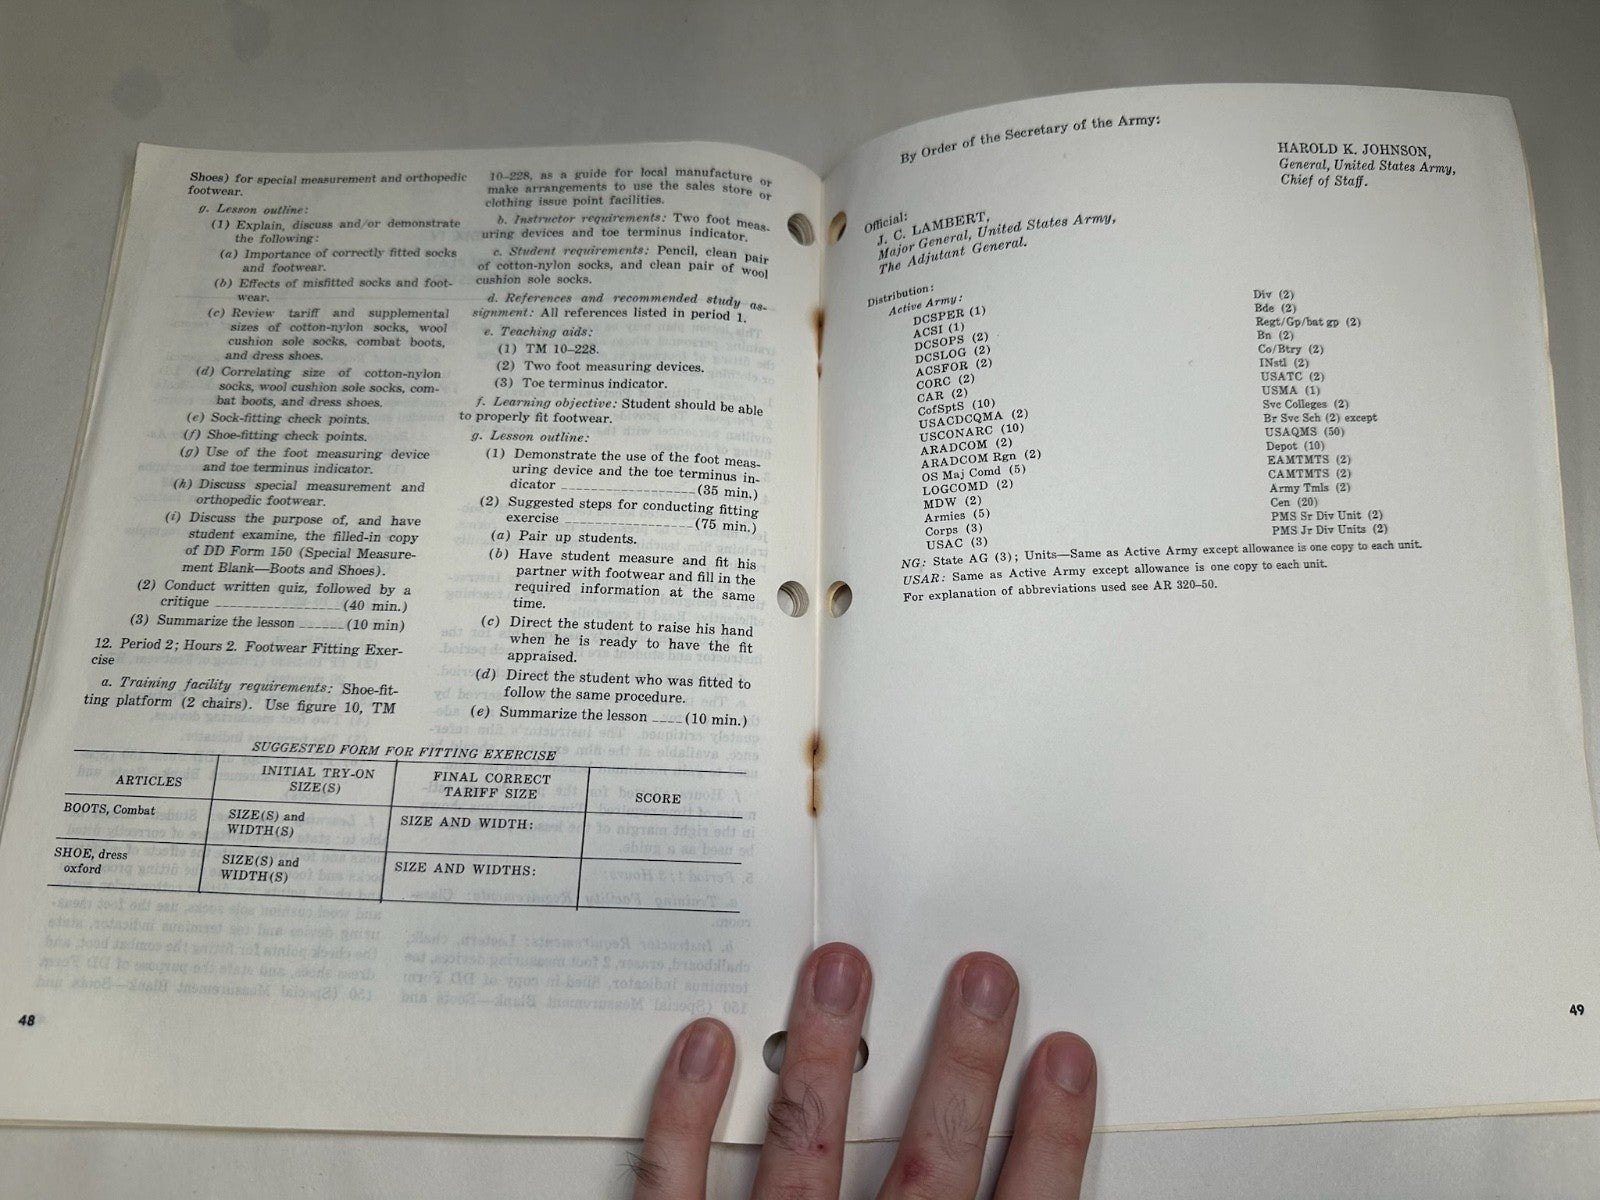 Shoes) for special measurement and orthopedic
footwear.
g. Lesson outline:
(1) Explain, discuss and/or demonstrate
the following:
(a) Importance of correctly fitted socks
and footwear.
(b) Effects of misfitted socks and foot-
wear.
(c) Review tariff and supplemental
sizes of cotton-nylon socks, wool
cushion sole socks, combat boots,
and dress shoes.
(d) Correlating size of cotton-nylon
socks, wool cushion sole socks, com-
bat boots, and dress shoes.
(e) Sock-fitting check points.
(f) Shoe-fitting check points.
(g) Use of the foot measuring device
and toe terminus indicator.
(h) Discuss special measurement and
orthopedic footwear.
(i) Discuss the purpose of, and have
student examine, the filled-in copy
of DD Form 150 (Special Measure-
ment Blank—Boots and Shoes).
(2) Conduct written quiz, followed by a
critique ________________ (40 min.)
(3) Summarize the lesson ______ (10 min)
12. Period 2; Hours 2. Footwear Fitting Exer-
cise
a. Training facility requirements: Shoe-fit-
ting platform (2 chairs). Use figure 10, TM
10–228, as a guide for local manufacture or
make arrangements to use the sales store or
clothing issue point facilities.
b. Instructor requirements: Two foot meas-
uring devices and toe terminus indicator.
c. Student requirements: Pencil, clean pair
of cotton-nylon socks, and clean pair of wool
cushion sole socks.
d. References and recommended study as-
signment: All references listed in period 1.
e. Teaching aids:
(1) TM 10–228.
(2) Two foot measuring devices.
(3) Toe terminus indicator.
f. Learning objective: Student should be able
to properly fit footwear.
g. Lesson outline:
(1) Demonstrate the use of the foot meas-
uring device and the toe terminus in-
dicator ________________ (35 min.)
(2) Suggested steps for conducting fitting
exercise ________________ (75 min.)
(a) Pair up students.
(b) Have student measure and fit his
partner with footwear and fill in the
required information at the same
time.
(c) Direct the student to raise his hand
when he is ready to have the fit
appraised.
(d) Direct the student who was fitted to
follow the same procedure.
(e) Summarize the lesson ____ (10 min.)
SUGGESTED FORM FOR FITTING EXERCISE
ARTICLES
INITIAL TRY-ON
SIZE(S)
FINAL CORRECT
TARIFF SIZE
SCORE
BOOTS, Combat
SIZE(S) and
WIDTH(S)
SIZE AND WIDTH:
SHOE, dress
oxford
SIZE(S) and
WIDTH(S)
SIZE AND WIDTHS:
48
By Order of the Secretary of the Army:
HAROLD K. JOHNSON,
General, United States Army,
Chief of Staff.
Official:
J. C. LAMBERT,
Major General, United States Army,
The Adjutant General.
Distribution:
Active Army:
DCSPER (1)
ACSI (1)
DCSOPS (2)
DCSLOG (2)
ACSFOR (2)
CORC (2)
CAR (2)
CofSptS (10)
USACDCQMA (2)
USCONARC (10)
ARADCOM (2)
ARADCOM Rgn (2)
OS Maj Comd (5)
LOGCOMD (2)
MDW (2)
Armies (5)
Corps (3)
USAC (3)
Div (2)
Bde (2)
Regt/Gp/bat gp (2)
Bn (2)
Co/Btry (2)
INstl (2)
USATC (2)
USMA (1)
Svc Colleges (2)
Br Svc Sch (2) except
USAQMS (50)
Depot (10)
EAMTMTS (2)
CAMTMTS (2)
Army Tmls (2)
Cen (20)
PMS Sr Div Unit (2)
PMS Jr Div Units (2)
NG: State AG (3); Units—Same as Active Army except allowance is one copy to each unit.
USAR: Same as Active Army except allowance is one copy to each unit.
For explanation of abbreviations used see AR 320–50.
49